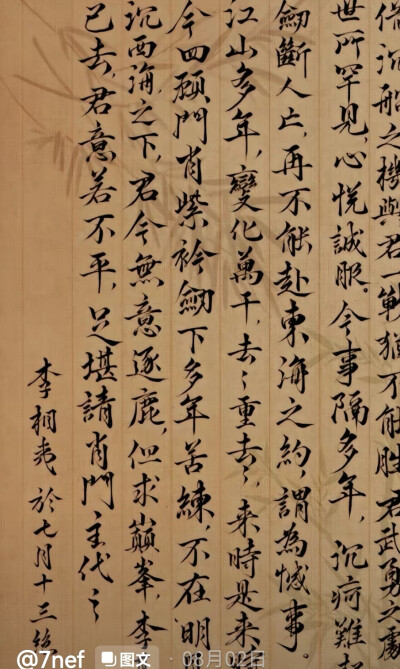 借沉船之機與君一戰猶不能勝君武勇之處
世所罕見,心悅誠服。今事隔多年,沉痾難
劍斷人亡,再不能赴東海之約,謂為憾事。
江山多年,變化萬千,去々重去々,來時是來
今四顧門肖紫衿劍下多年苦練,不在明
沉西海之下,君今無意逐鹿,但求巔峯,李
已去,君意若不平,足堪請肖門主代之
李相夷於七月十三絶
@7nef 图文 · 08月02日